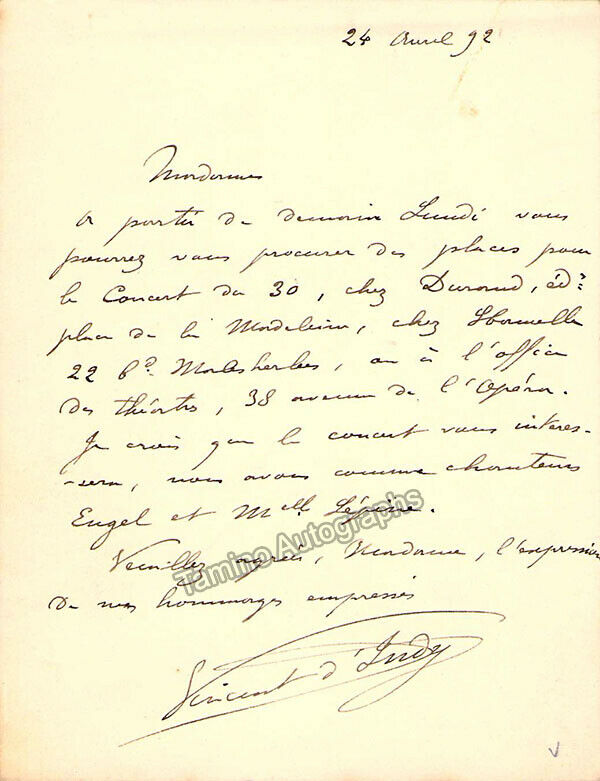 24 Avril 92
Madame
A partir de demain Lundi vous
pourrez vous procurer des places pour
le Concert du 30, chez Durand, édr
place de la Madeleine, chez
22 bd. Malesherbes, ou à l'office
des théâtres, 38 avenue de l'Opéra.
Je crois que le concert vous intéres-
-sera, nous avons comme chanteurs
Engel et Melle Lépine.
Tamino Autographs
Veuillez agréer, Madame, l'expression
de mes hommages empressés
Vincent d'Indy